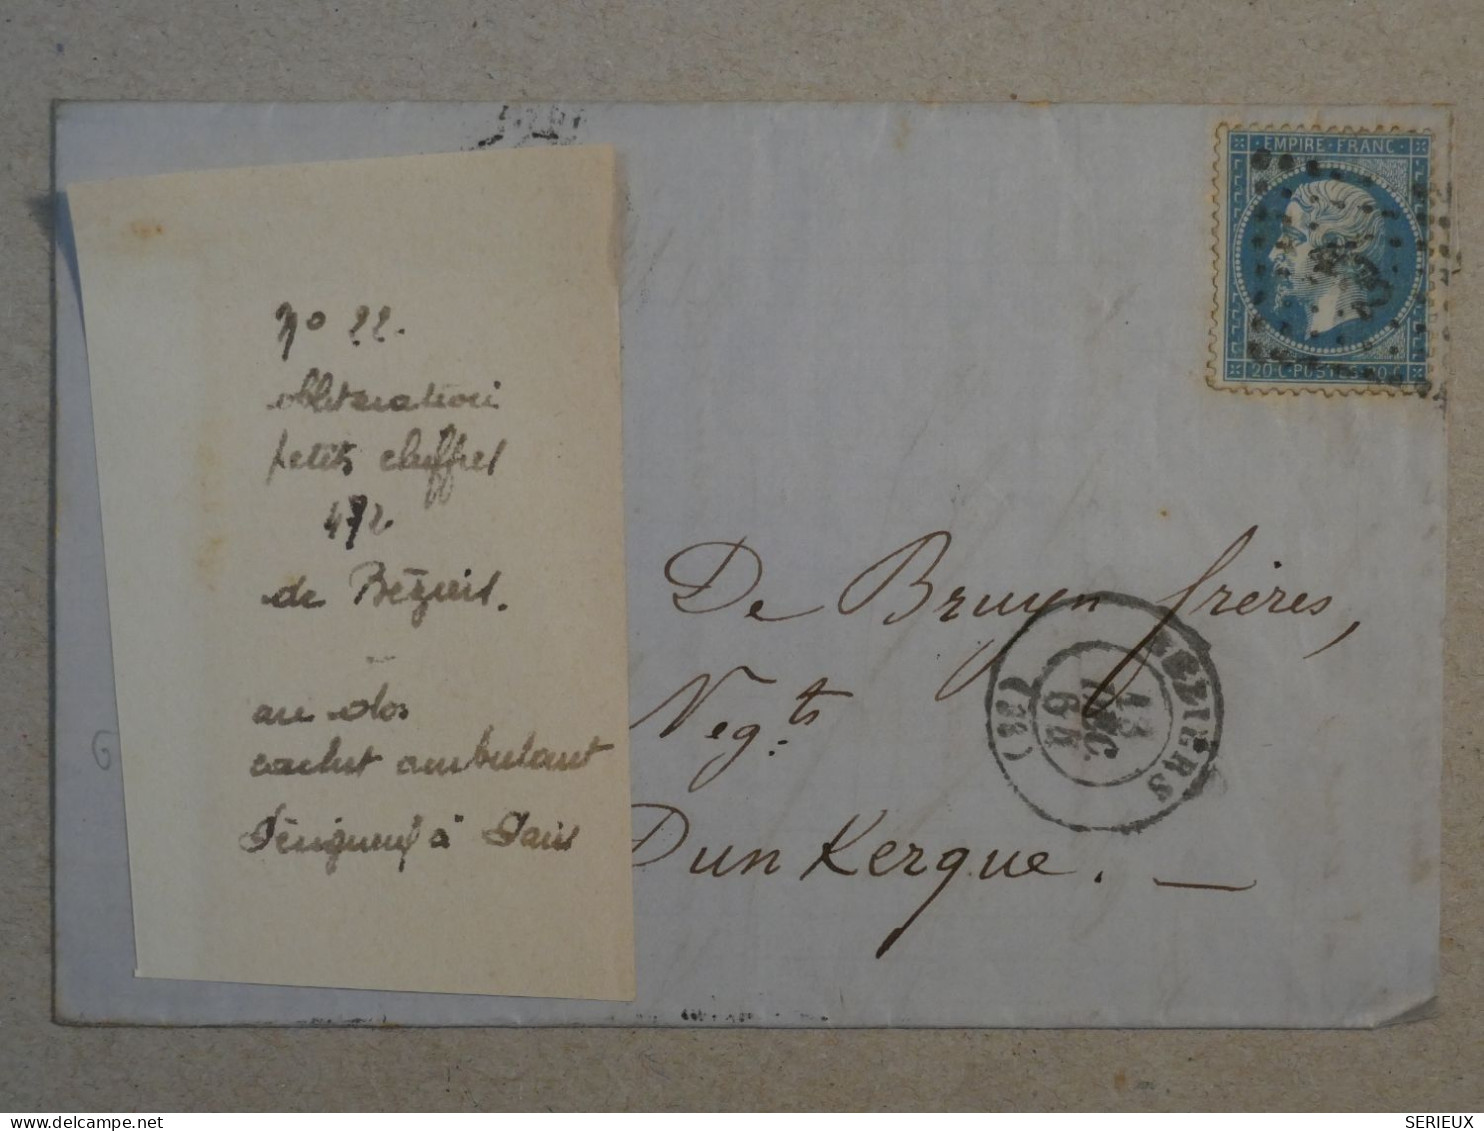 EMPIRE · FRANC ·
20 C POSTES 20 C
No 22.
oblitération
petits chiffres
472.
de Béziers.
au dos
cachet ambulant
Périgueux à Paris
De Bruyen frères,
Neg.ts
DunKerque. —
BEZIERS
13
DEC.
65
(33)
SERIEUX